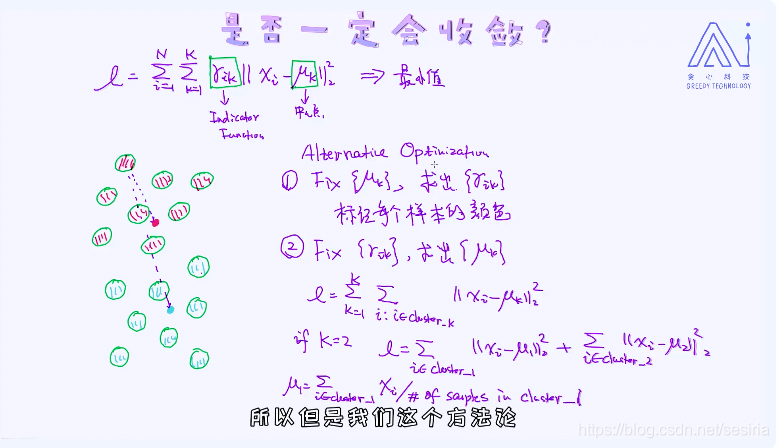 是否一定会收敛?
贪心科技
GREEDY TECHNOLOGY
ℓ = Σ_{i=1}^{N} Σ_{k=1}^{K} γ_{ik} ‖x_i − μ_k‖_2^2 ⇒ 最小值
Indicator Function
中心点
Alternative Optimization
① Fix {μ_k}, 求出 {γ_{ik}}
标记每个样本的颜色
② Fix {γ_{ik}}, 求出 {μ_k}
ℓ = Σ_{k=1}^{K} Σ_{i: i∈cluster_k} ‖x_i − μ_k‖_2^2
if K=2 ℓ = Σ_{i∈cluster_1} ‖x_i − μ_1‖_2^2 + Σ_{i∈cluster_2} ‖x_i − μ_2‖_2^2
μ_1 = Σ_{i∈cluster_1} x_i / # of samples in cluster_1
所以但是我们这个方法论
https://blog.csdn.net/sesiria